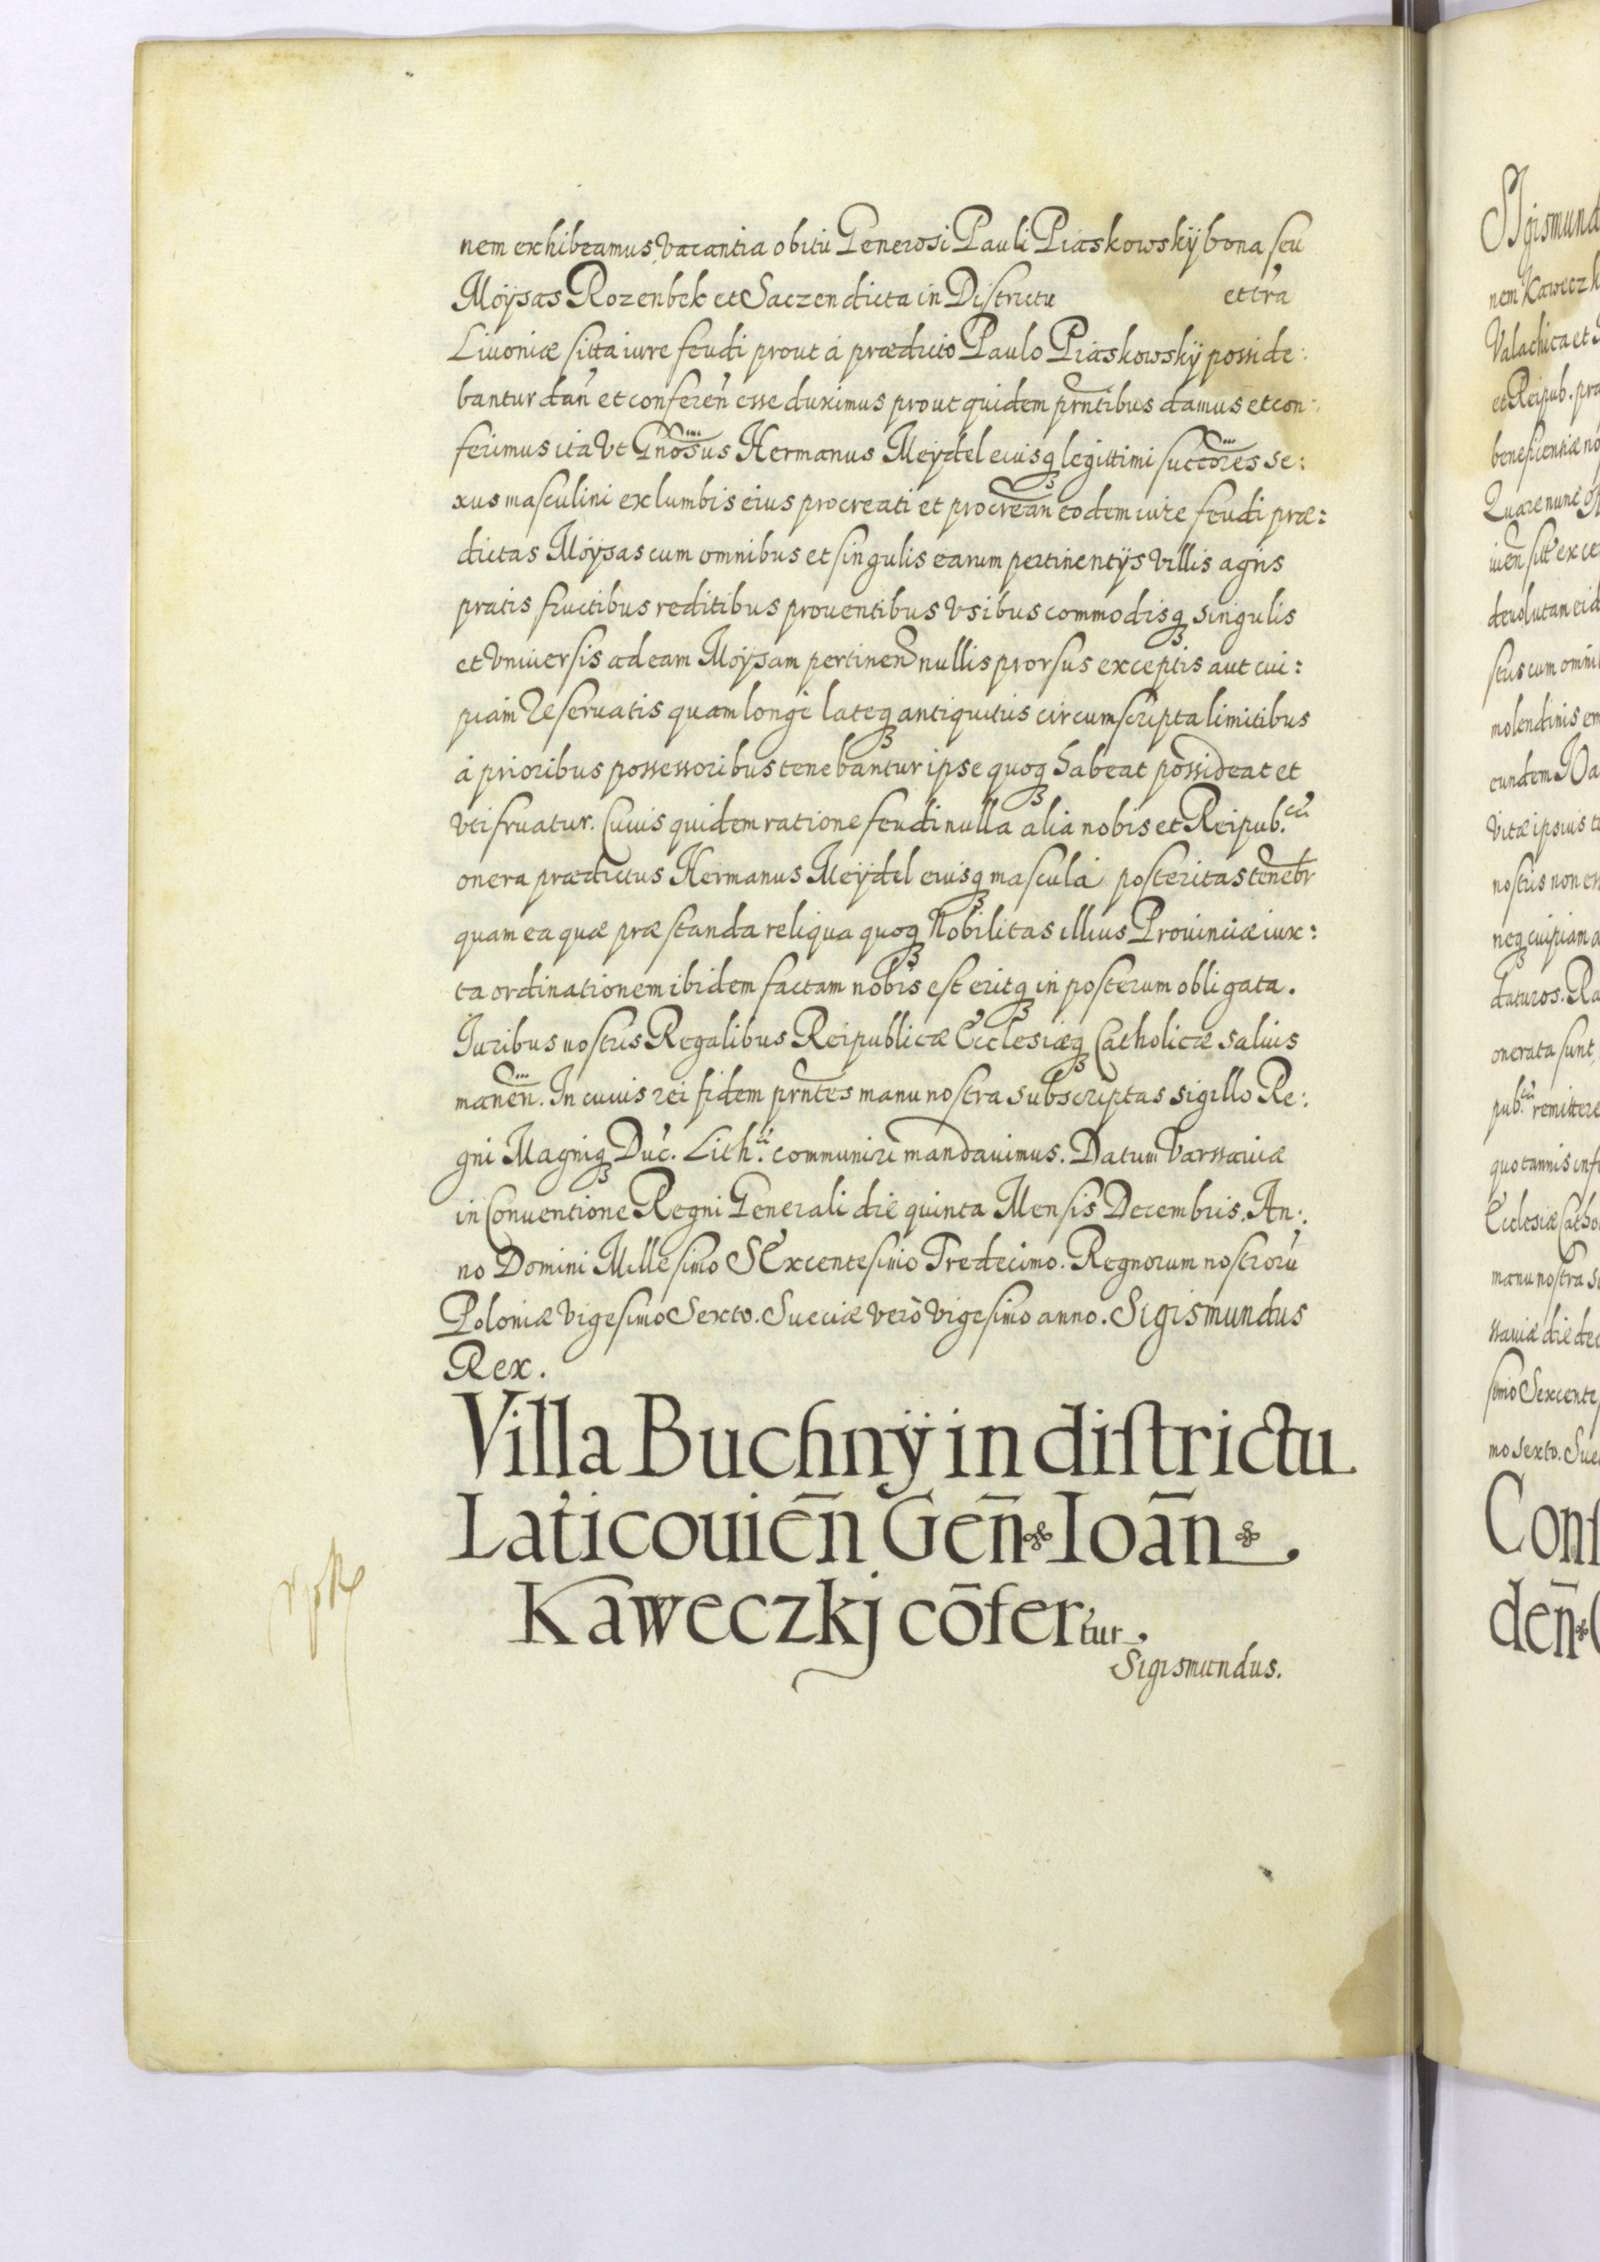 nem exhibeamus, vacantia obitu Generosi Pauli Piaskowskÿ bona seu
Moÿsas Rozenbek et Saczen dicta in Districtu et tra
Liuoniæ sitta iure feudi prout á prædicto Paulo Piaskowskÿ posside:
bantur dan̄ et conferen̄ esse duximus prout quidem prn̄tibus damus et con:
ferimus ita vt Gnōsus Hermanus Meydel eiusq3 legittimi succōres se:
xus masculini ex lumbis eius procreati et procrean̄ eodem iure feudi præ:
dictas Moÿsas cum omnibus et singulis earum pertinentijs villis agris
pratis fructibus reditibus prouentibus vsibus commodisq3 singulis
et vniuersis ad eam Moÿsam pertinen̄ nullis prorsus exceptis aut cui:
piam reseruatis quam longè lateq3 antiquitus circumscripta limitibus
á prioribus possessoribus tenebantur ipse quoq3 habeat possideat et
vti fruatur. Cuius quidem ratione feudi nulla alia nobis et Reipub.cæ
onera prædictus Hermanus Meÿdel eiusq3 mascula posteritas tenebr̄
quam ea quæ præstanda reliqua quoq3 Nobilitas illius Prouinciæ iux:
ta ordinationem ibidem factam nobis est eritq3 in posterum obligata.
Iuribus nostris Regalibus Reipublicæ Ecclesiæq3 Catholicæ saluis
manen̄. In cuius rei fidem prn̄tes manu nostra subscriptas sigillo Re:
gni Magniq3 Duc. Lith. communiri mandauimus. Datum Varssauiæ
in Conuentione Regni Generali die quinta Mensis Decembris. An:
no Domini Millesimo SExcentesimo Tredecimo. Regnorum nostrorū
Poloniæ vigesimo Sexto. Sueciæ verò vigesimo anno. Sigismundus
Rex.
Villa Buchnÿ in districtu
Laticouien̄ Gen̄ Ioan̄
Kaweczkj cōfertur.
Sigismundus.
SIgismund
nem Kaweczk
Valachica et
et Reipub. pra
beneficentiæ no
Quare nunc
deuolutam eid
stus cum omni
molendinis em
eundem
vitæ ipsius
nostris non
neq3 cuipiam a
daturos. Ra
onerata sunt
pub.cæ remittere
quotannis inf
Ecclesiæ Catho
manu nostra s
ssauiæ die dec
simo Sexcente
mo sexto. Sue
Con
den̄